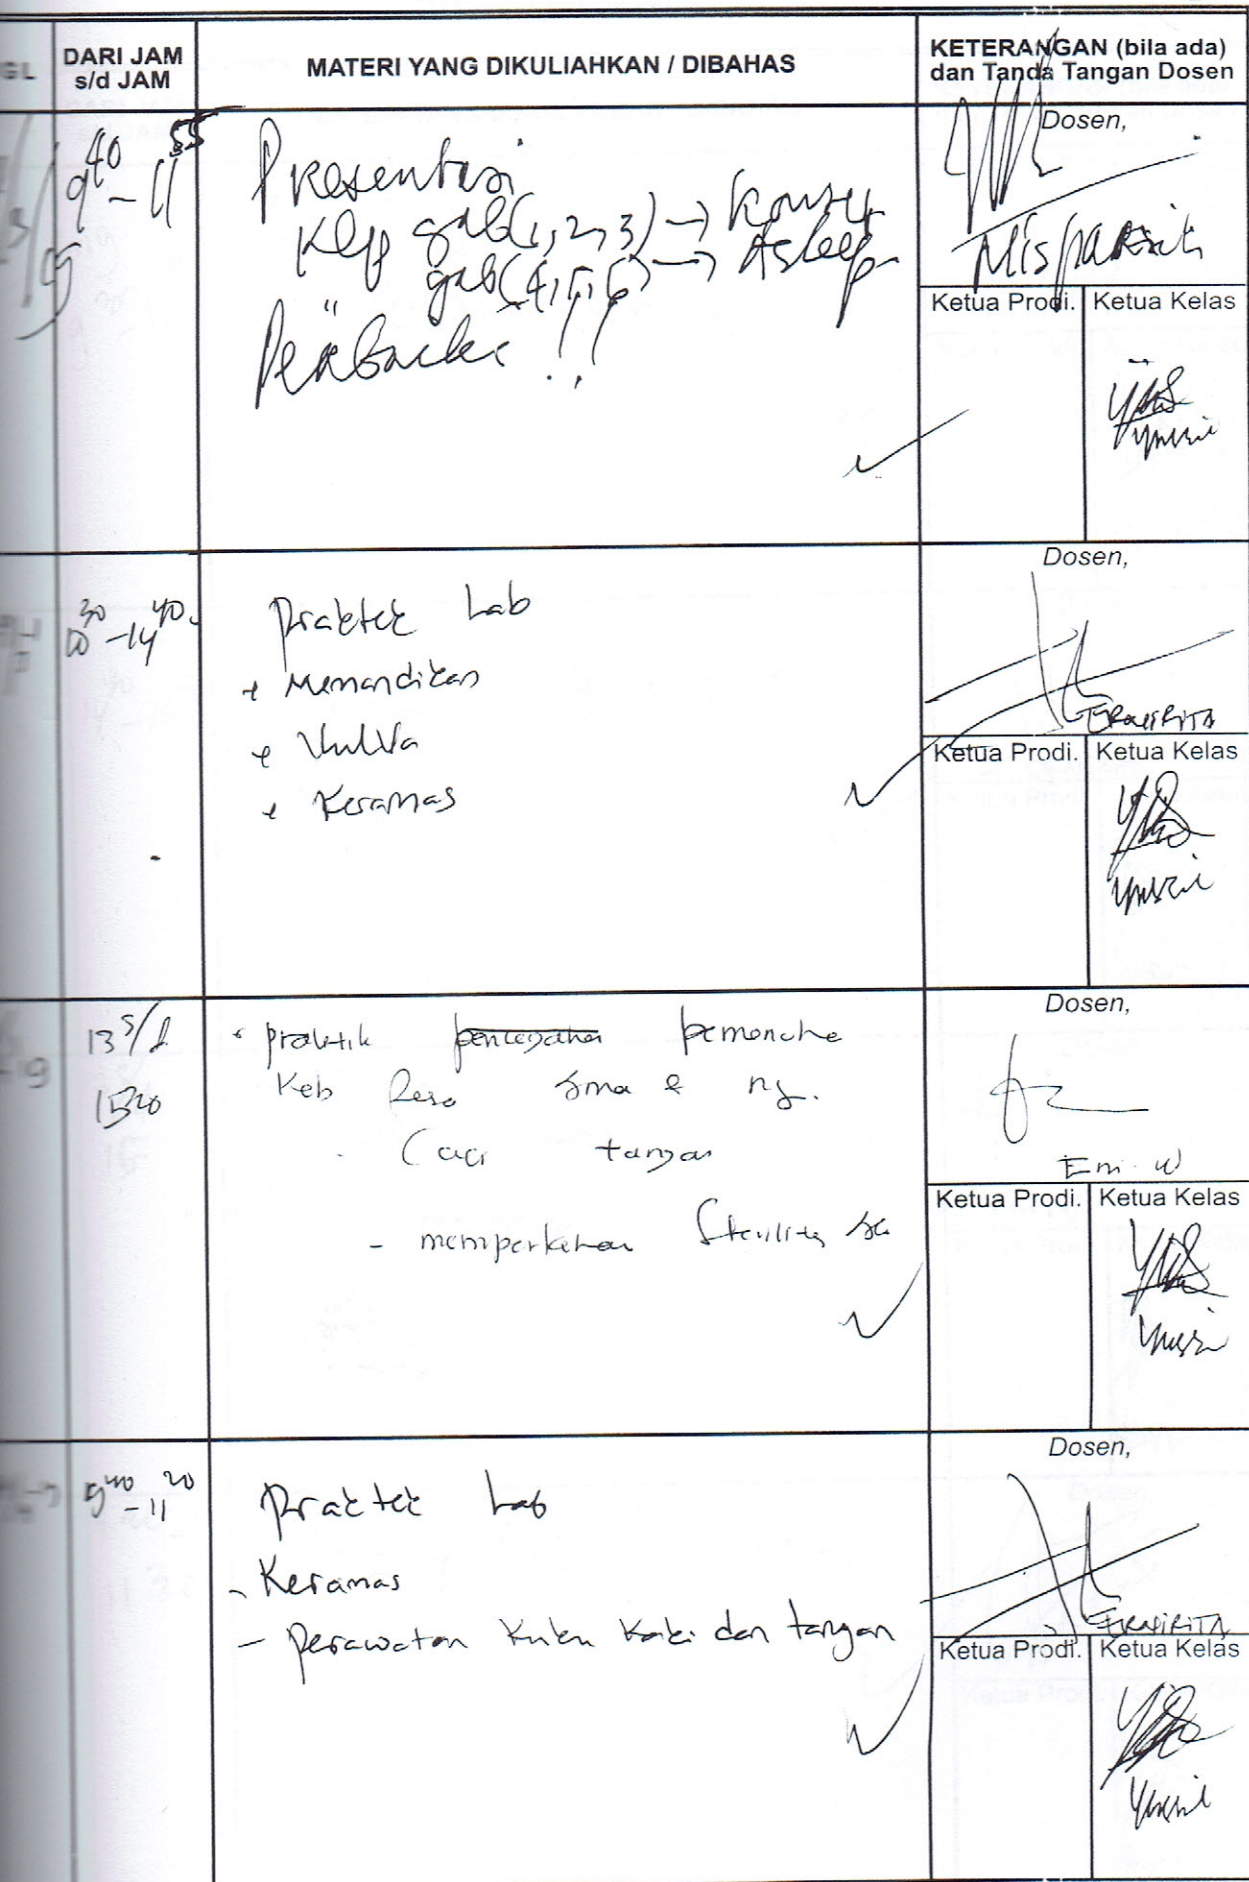 GL
DARI JAM
s/d JAM
MATERI YANG DIKULIAHKAN / DIBAHAS
KETERANGAN (bila ada)
dan Tanda Tangan Dosen
9 40 - 11 55
Presentasi
Klp gab (1, 2, 3) → Konsep
" gab (4, 5, 6) → Askep
!!
Dosen,
Misparsih
Ketua Prodi.
Ketua Kelas
Yusri
10 30 - 14 40
Praktek Lab
+ Memandikan
+ Vulva
+ Keramas
Dosen,
ERNIRITA
Ketua Prodi.
Ketua Kelas
Yusri
13 s/d
15 20
praktik pencegahan
Keb Rasa &
- Cuci tangan
-
Dosen,
Eni. W
Ketua Prodi.
Ketua Kelas
Yusri
9 40 - 11 20
Praktek Lab
- Keramas
- perawatan kuku kaki dan tangan
Dosen,
ERNIRITA
Ketua Prodi.
Ketua Kelas
Yusri